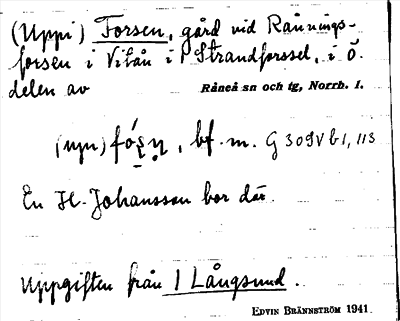 (Uppi) Forsen, gård vid Rännings-
forsen i Vitån i Strandforssel, i ö.
delen av Råneå sn och tg, Norrb. l.
(upi) , bf. m. G 309V b1, 113
En H. Johansson bor där.
Uppgiften från I Långsund.
EDVIN BRÄNNSTRÖM 1941.